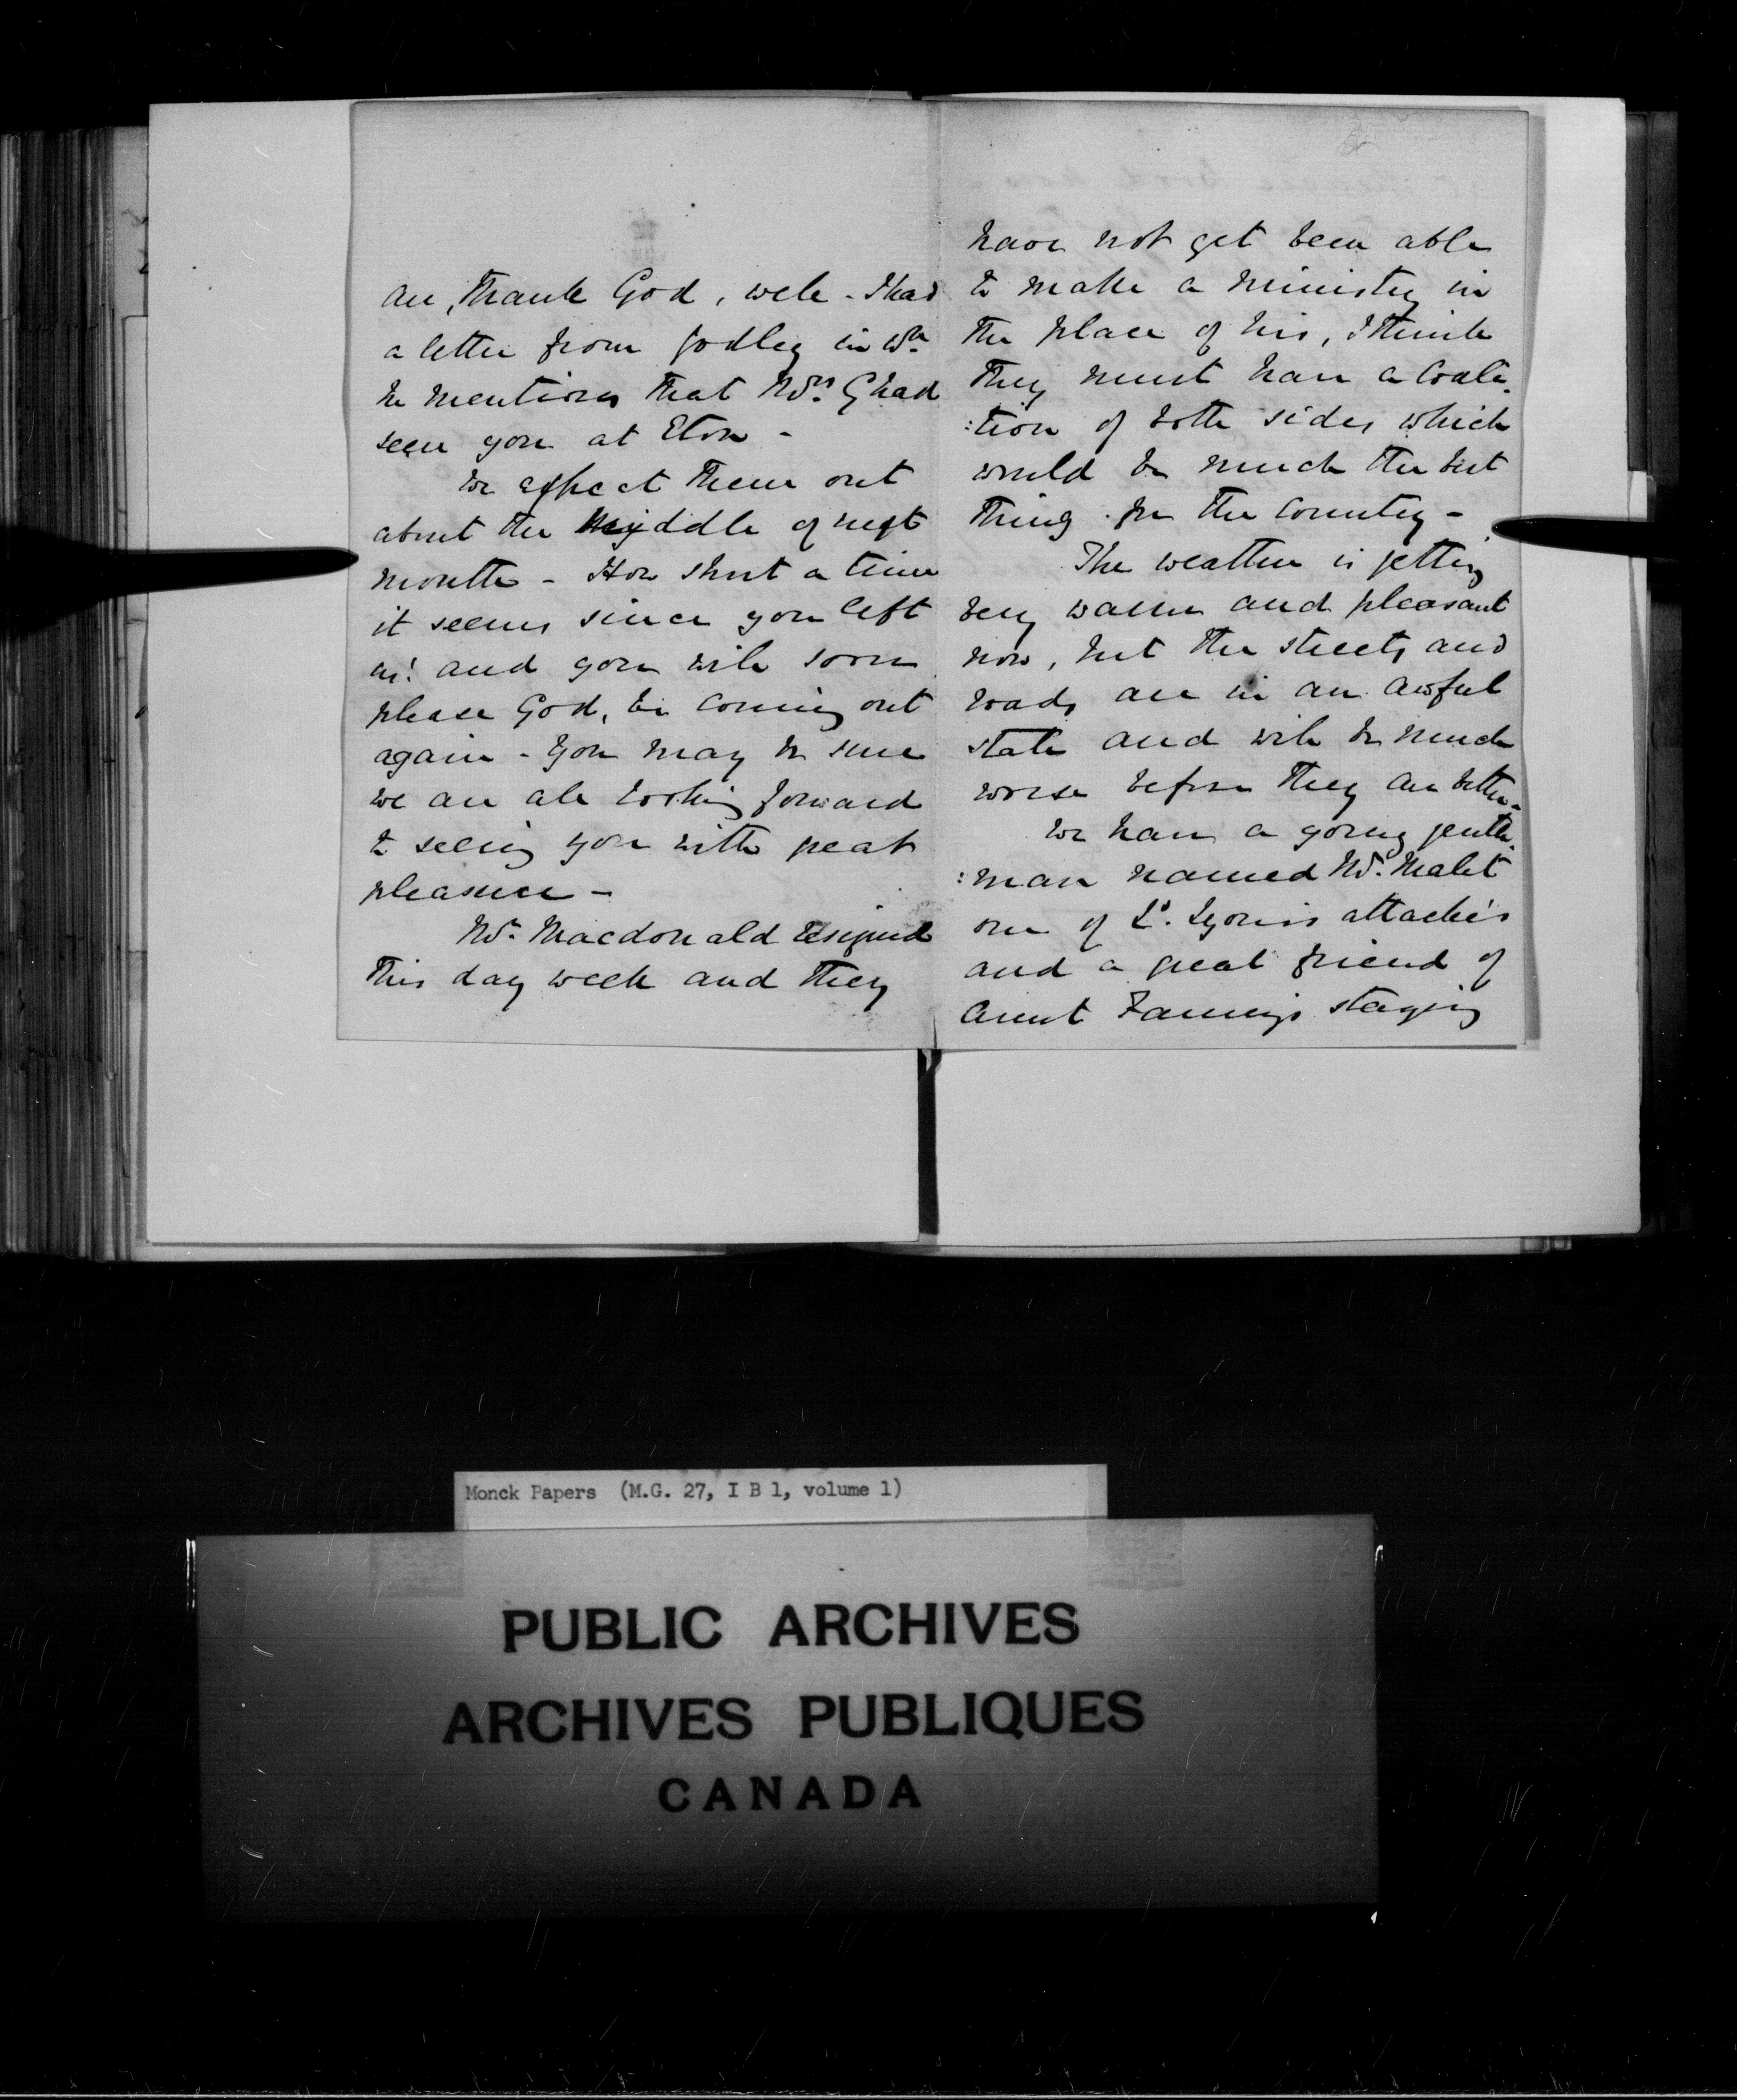 are, thank God, well - I had
a letter from Godley in wh.
he mentions that Mrs. G had
seen you at Eton -
We expect them out
about the middle of next
month - How short a time
it seems since you left
us! and you will soon
please God, be coming out
again - You may be sure
we are all looking forward
to seeing you with great
pleasure -
Mr. Macdonald resigned
this day week and they
have not yet been able
to make a ministry in
the place of his, I think
they must have a Coali
:tion of both sides which
would be much the best
thing for the Country -
The weather is getting
very warm and pleasant
now, but the streets and
roads are in an awful
state and will be much
worse before they are better -
We have a young gentle
:man named Mr. Malet
one of Ld. Lyons's attachés
and a great friend of
Aunt Fanny's staying
Monck Papers (M.G. 27, I B 1, volume 1)
PUBLIC ARCHIVES
ARCHIVES PUBLIQUES
CANADA